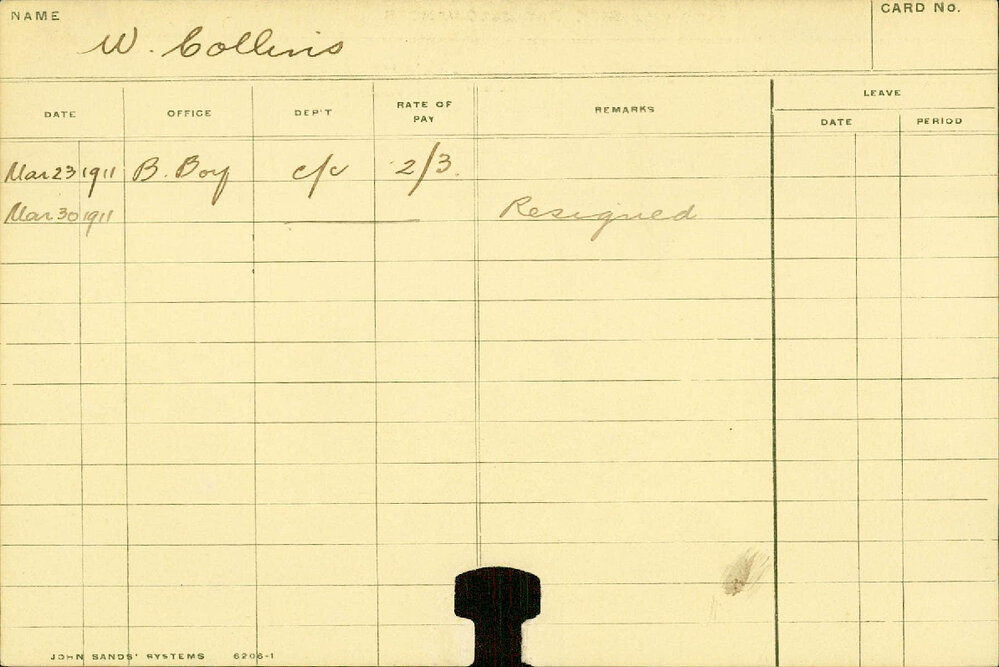 NAME
W. Collins
CARD No.
DATE OFFICE DEP'T RATE OF PAY REMARKS LEAVE
DATE PERIOD
Mar 23 1911 B. Boy c/c 2/3.
Mar 30 1911 Resigned
JOHN SANDS' SYSTEMS 6206-1